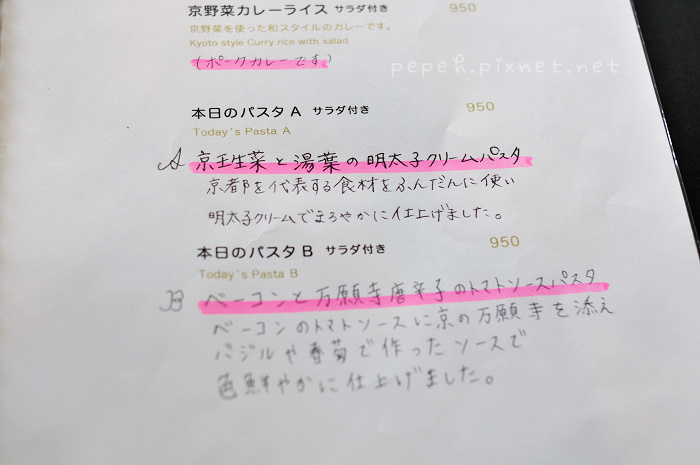 京野菜カレーライス サラダ付き 950
京野菜を使った和スタイルのカレーです。
Kyoto style Curry rice with salad
(ポークカレーです)
pepeh.pixnet.net
本日のパスタA サラダ付き 950
Today's Pasta A
A 京壬生菜と湯葉の明太子クリームパスタ
京都を代表する食材をふんだんに使い
明太子クリームでまろやかに仕上げました。
本日のパスタB サラダ付き 950
Today's Pasta B
B ベーコンと万願寺唐辛子のトマトソースパスタ
ベーコンのトマトソースに京の万願寺を添え
バジルや春菊で作ったソースで
色鮮やかに仕上げました。